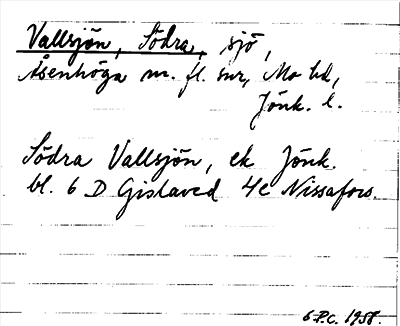 Vallsjön, Södra, sjö,
Åsenhöga m. fl. snr, Mo hd,
Jönk. l.
Södra Vallsjön, ek Jönk.
bl. 6 D Gislaved 4e Nissafors.
6 P.C. 1958.